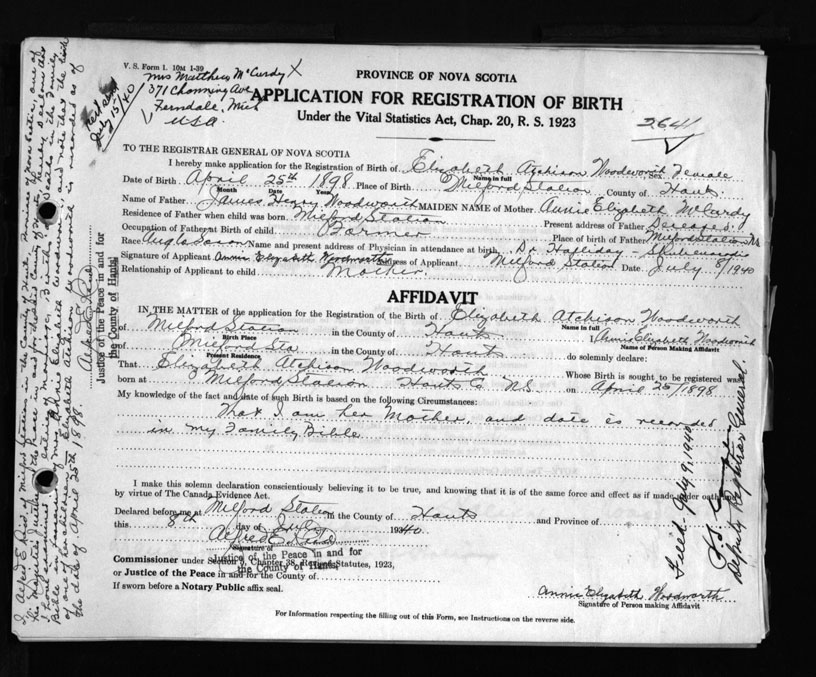 V. S. Form 1. 10M 1-39
Mrs Matthew McCurdy X
371 Channing Ave
Ferndale, Mich
U.S.A.
July 15/40
PROVINCE OF NOVA SCOTIA
APPLICATION FOR REGISTRATION OF BIRTH
Under the Vital Statistics Act, Chap. 20, R. S. 1923
2641
TO THE REGISTRAR GENERAL OF NOVA SCOTIA
I hereby make application for the Registration of Birth of Elizabeth Atchison Woodworth Female
Name in full
Date of Birth April 25th 1898 Place of Birth Milford Station County of Hants
Month Date Year
Name of Father James Henry Woodworth MAIDEN NAME of Mother Annie Elizabeth McCurdy
Residence of Father when child was born Milford Station Present address of Father Deceased
Occupation of Father at Birth of child Farmer Place of birth of Father Milford Station NS
Race Anglo Saxon Name and present address of Physician in attendance at birth Dr Halliday - Shubenacadie
Signature of Applicant Annie Elizabeth Woodworth Address of Applicant Milford Station Date July 8/1940
Relationship of Applicant to child Mother.
AFFIDAVIT
IN THE MATTER of the application for the Registration of the Birth of Elizabeth Atchison Woodworth
Name in full
of Milford Station in the County of Hants Annie Elizabeth Woodworth
Birth Place Name of Person Making Affidavit
of Milford Sta in the County of Hants do solemnly declare:
Present Residence
That Elizabeth Atchison Woodworth Whose Birth is sought to be registered was
born at Milford Station Hants Co N.S. on April 25/1898
My knowledge of the fact and date of such Birth is based on the following Circumstances:
That I am her Mother, and date is recorded
in my Family Bible
I make this solemn declaration conscientiously believing it to be true, and knowing that it is of the same force and effect as if made under oath
by virtue of The Canada Evidence Act.
Declared before me at Milford Station in the County of Hants and Province of
this 8th day of July 1940.
Alfred E. Reid
Signature of
Justice of the Peace in and for
the County of Hants
Commissioner under Section 6, Chapter 38, Revised Statutes, 1923,
or Justice of the Peace in and for the County of
If sworn before a Notary Public affix seal.
Annie Elizabeth Woodworth
Signature of Person making Affidavit
For Information respecting the filling out of this Form, see Instructions on the reverse side.
Filed July 9, 1940
Deputy Registrar General
I, Alfred E. Reid, of Milford Station in the County of Hants, Province of Nova Scotia, one of
His Majesty's Justices of the Peace in and for the said County of Hants, do hereby declare that
I have examined the entries of Marriage, Births and Deaths in the Family
Bible in possession of Mrs Annie Elizabeth Woodworth, and note that the birth
of one of her children, Elizabeth Atchison Woodworth is recorded as of
the date of April 25th 1898.
Alfred E. Reid
Justice of the Peace in and for
the County of Hants